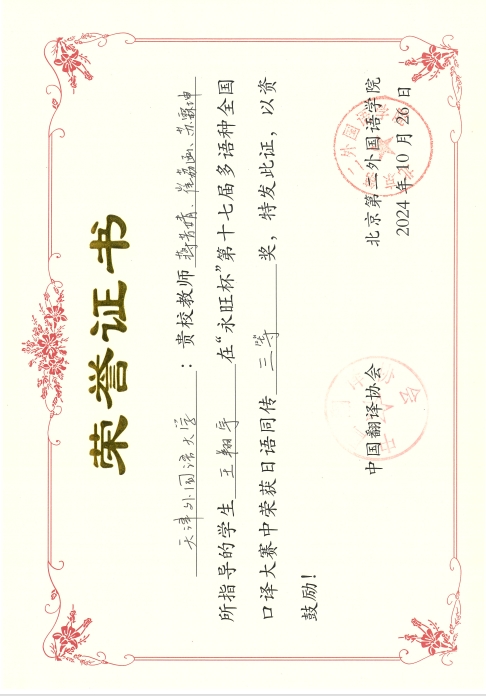 荣誉证书
天津外国语大学：贵校教师
所指导的学生王翔宇在“永旺杯”第十七届多语种全国
口译大赛中荣获日语同传三等奖，特发此证，以资
鼓励！
中国翻译协会 北京第二外国语学院
2024年10月26日